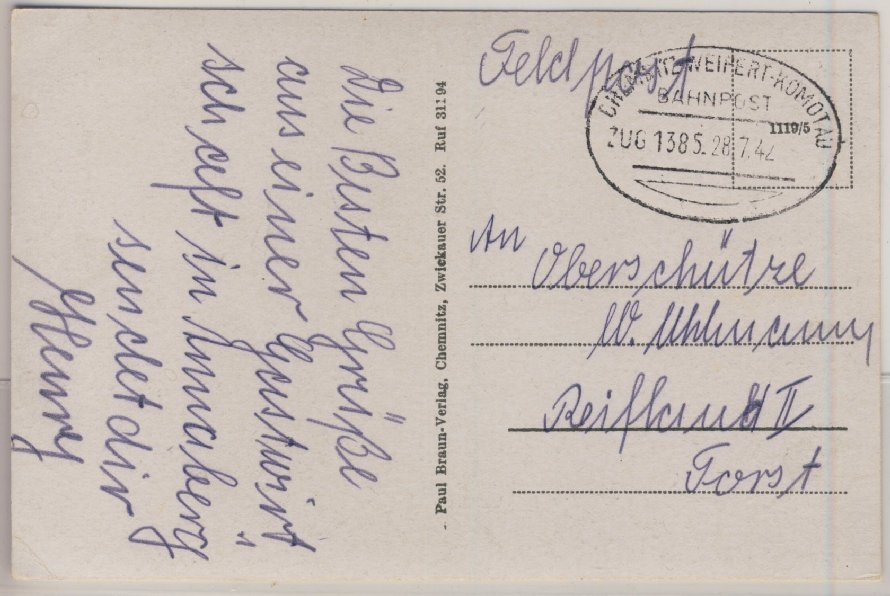 Die Besten Grüße
aus einer Gastwirt
schaft in Annaberg
sendet dir
Henry
Paul Braun-Verlag, Chemnitz, Zwickauer Str. 52. Ruf 31194
Feldpost
CHEMNITZ-WEIPERT-KOMOTAU
BAHNPOST
1119/5
ZUG 1385 28.7.42
An
Oberschütze
W. Uhlmann
Reifland II
Forst